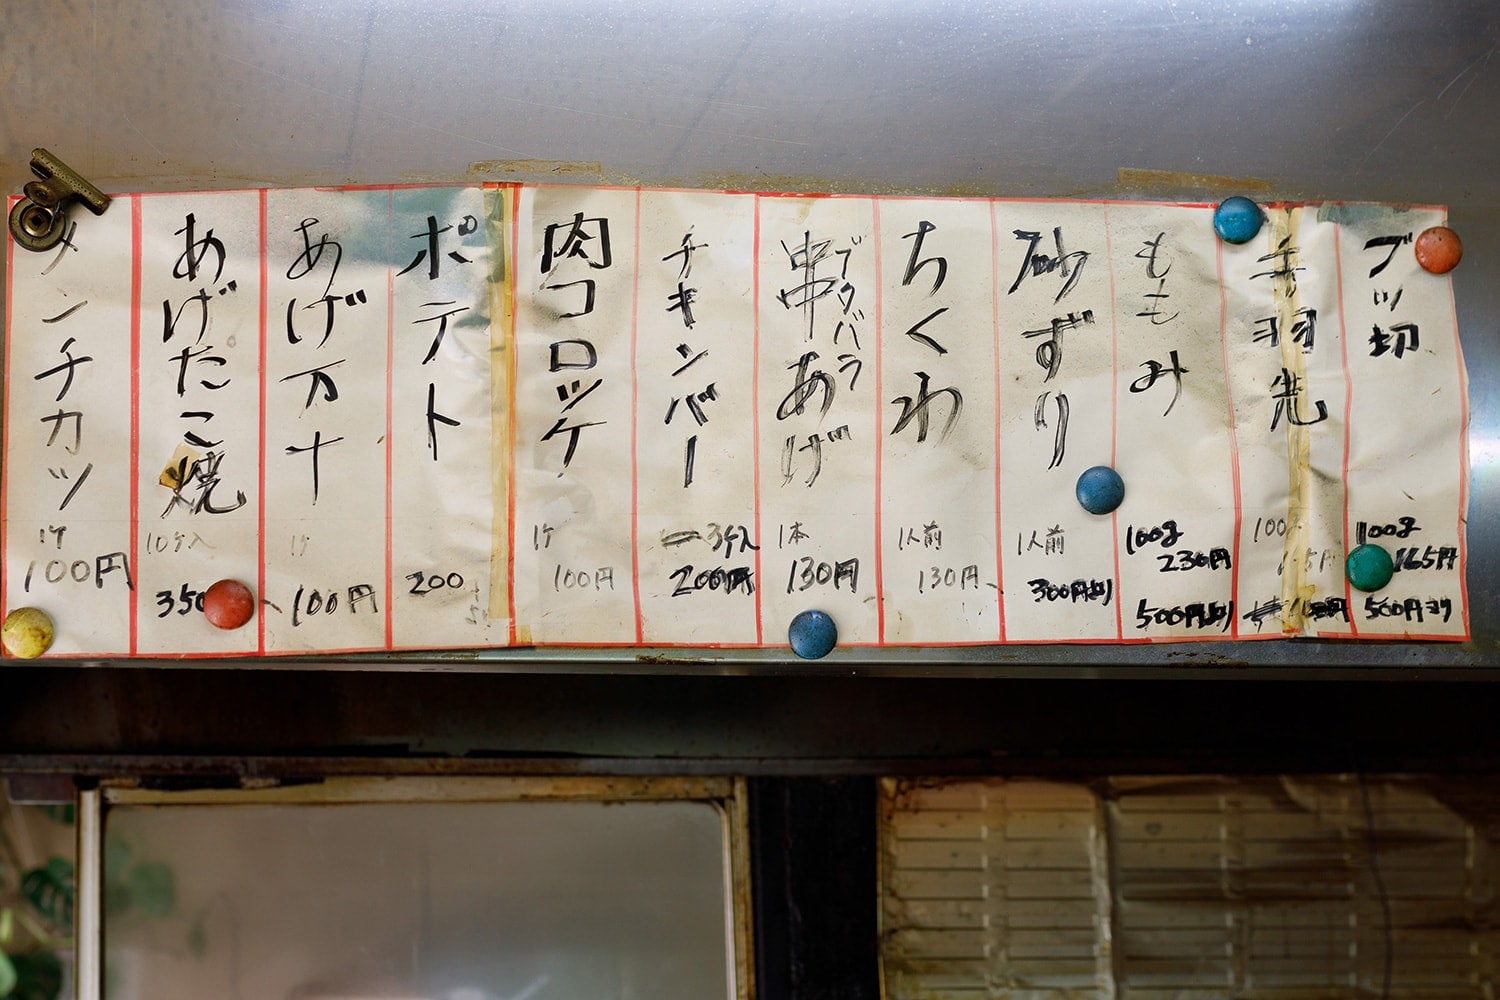 ブツ切
100g 165円
500円より
手羽先
100
もも み
100g
230円
500円より
砂ずり
1人前
300円より
ちくわ
1人前
130円
ブタバラ
串あげ
1本
130円
チキンバー
3ケ入
200円
肉コロッケ
1ケ
100円
ポテト
200
あげ万十
1ケ
100円
あげたこ焼
10ケ入
350
メンチカツ
1ケ
100円